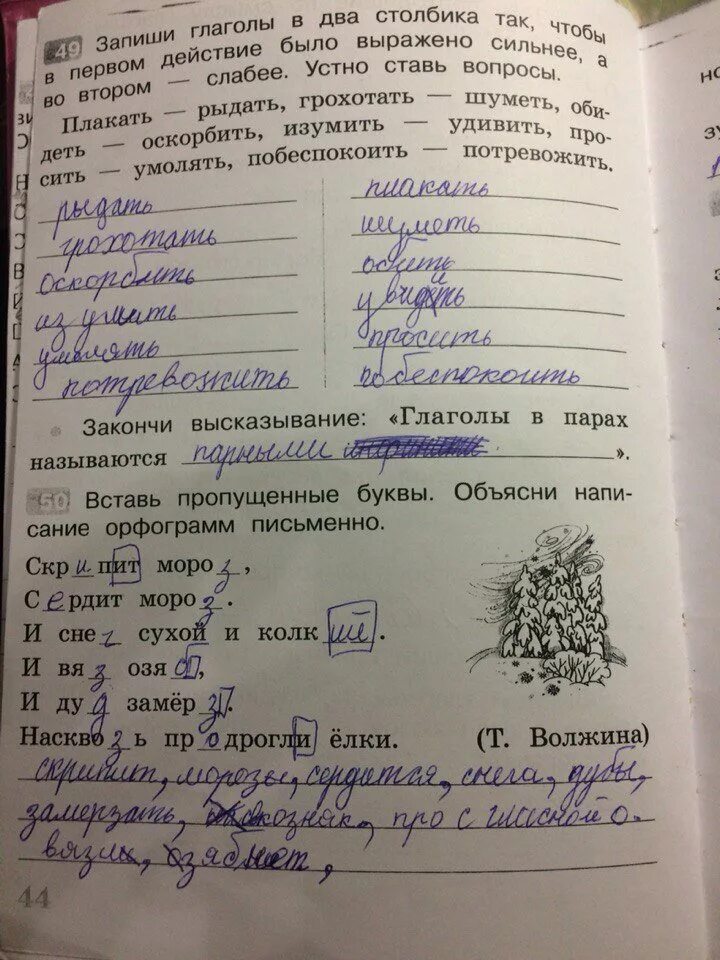 49 Запиши глаголы в два столбика так, чтобы
в первом действие было выражено сильнее, а
во втором — слабее. Устно ставь вопросы.
Плакать — рыдать, грохотать — шуметь, оби-
деть — оскорбить, изумить — удивить, про-
сить — умолять, побеспокоить — потревожить.
рыдать плакать
грохотать шуметь
оскорбить
изумить
умолять просить
потревожить побеспокоить
Закончи высказывание: «Глаголы в парах
называются парными ».
50 Вставь пропущенные буквы. Объясни напи-
сание орфограмм письменно.
Скрипит мороз,
Сердит мороз.
И снег сухой и колкий.
И вяз озяб,
И дуд замёрз.
Насквозь продрогли ёлки. (Т. Волжина)
скрипит, морозы, сердится, снега, дубы,
замерзать, сквозняк, про с гласной о.
вязы, озябнет,
44